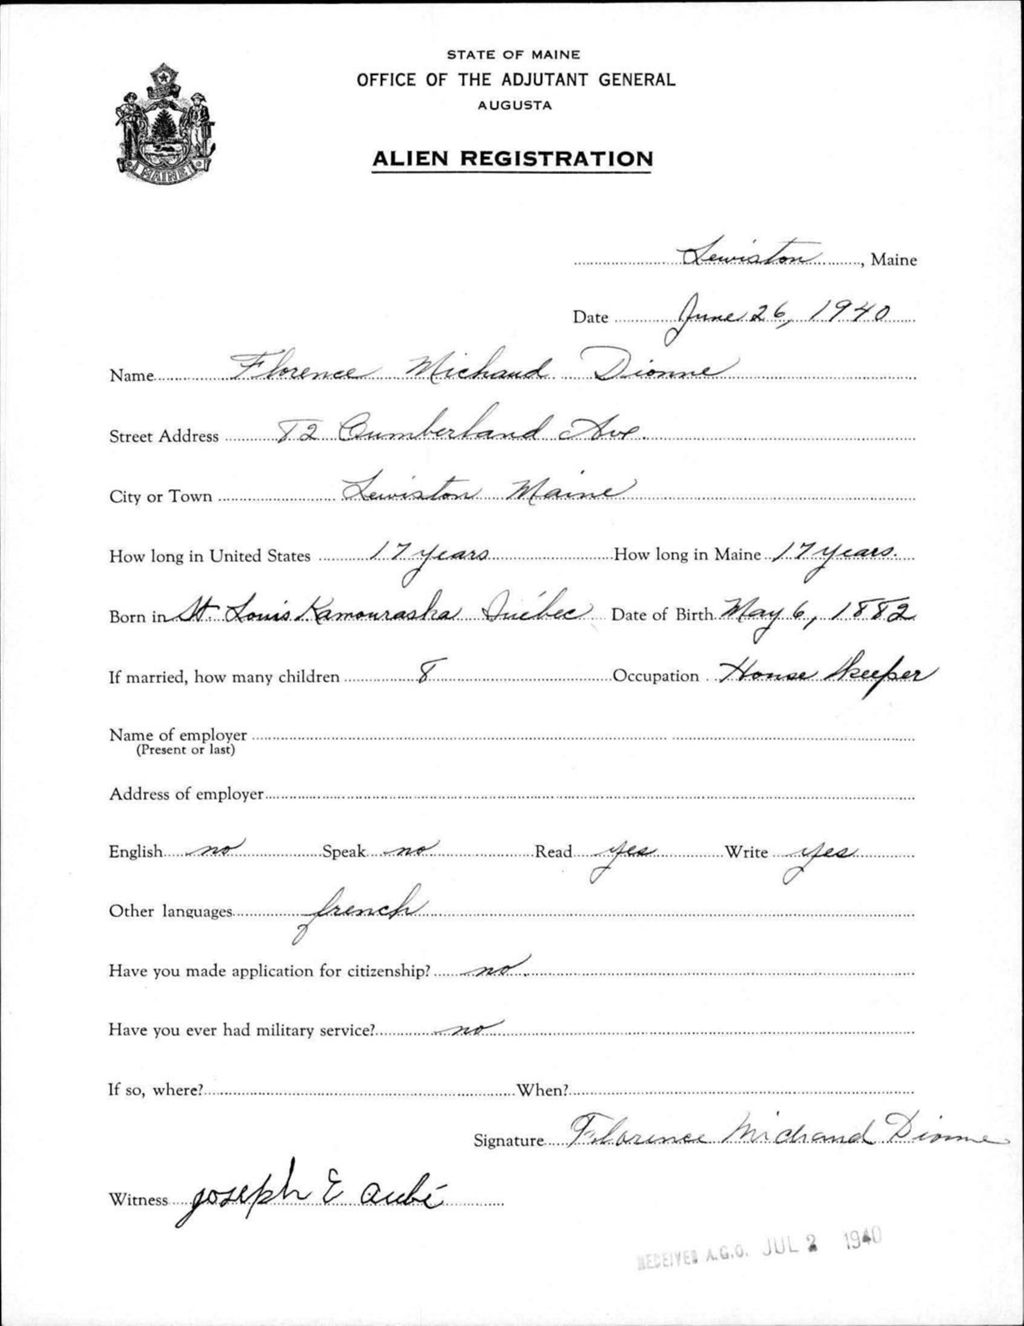 STATE OF MAINE
OFFICE OF THE ADJUTANT GENERAL
AUGUSTA
ALIEN REGISTRATION
MAINE
Lewiston, Maine
Date June 26, 1940
Name Florence Michaud Dionne
Street Address 82 Cumberland Ave.
City or Town Lewiston Maine
How long in United States 17 years How long in Maine 17 years.
Born in St. Louis Kamouraska Québec Date of Birth May 6, 1882
If married, how many children 8 Occupation House Skeeper
Name of employer
(Present or last)
Address of employer
English no Speak no Read yes Write yes
Other languages french
Have you made application for citizenship? no.
Have you ever had military service? no
If so, where? When?
Signature Florence Michaud Dionne
Witness Joseph E Aubé
RECEIVED A.G.O. JUL 2 1940